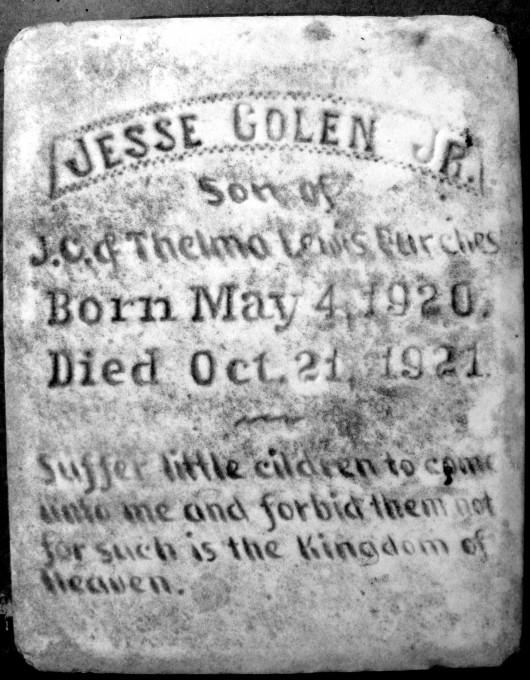 JESSE COLEN JR.
Son of
J.C. & Thelma Lewis Furches
Born May 4, 1920.
Died Oct. 21, 1921.
Suffer little cildren to come
unto me and forbid them not
for such is the Kingdom of
Heaven.